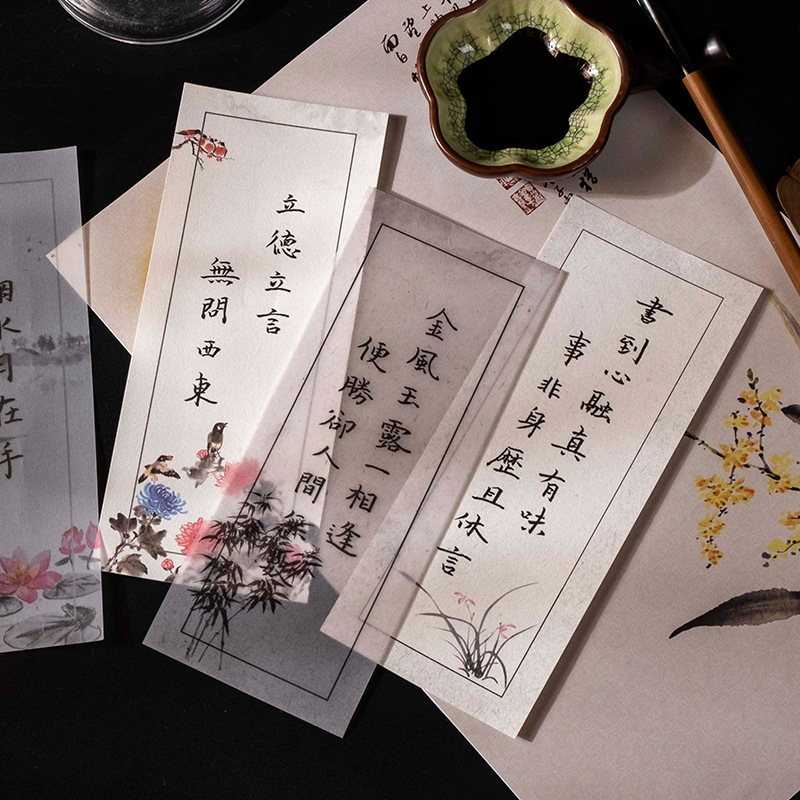 水月在手
立德立言
無問西東
金風玉露一相逢
便勝卻人間無數
書到心融真有味
事非身歷且休言